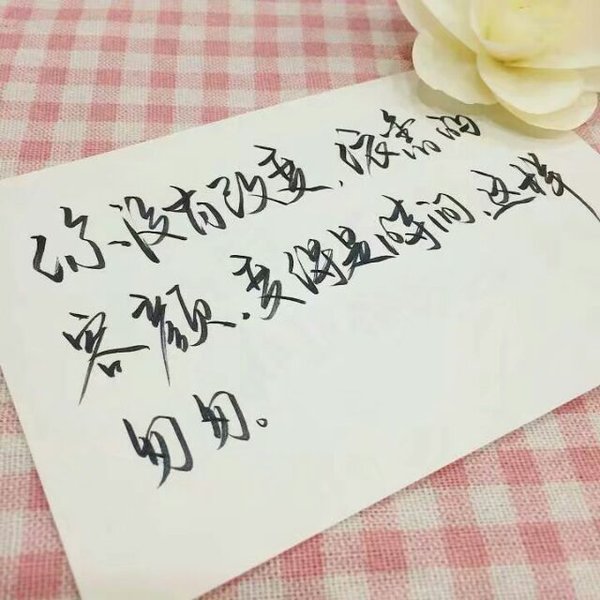 你没有改变,依舊的
容颜,变得是時间,这样
匆匆。